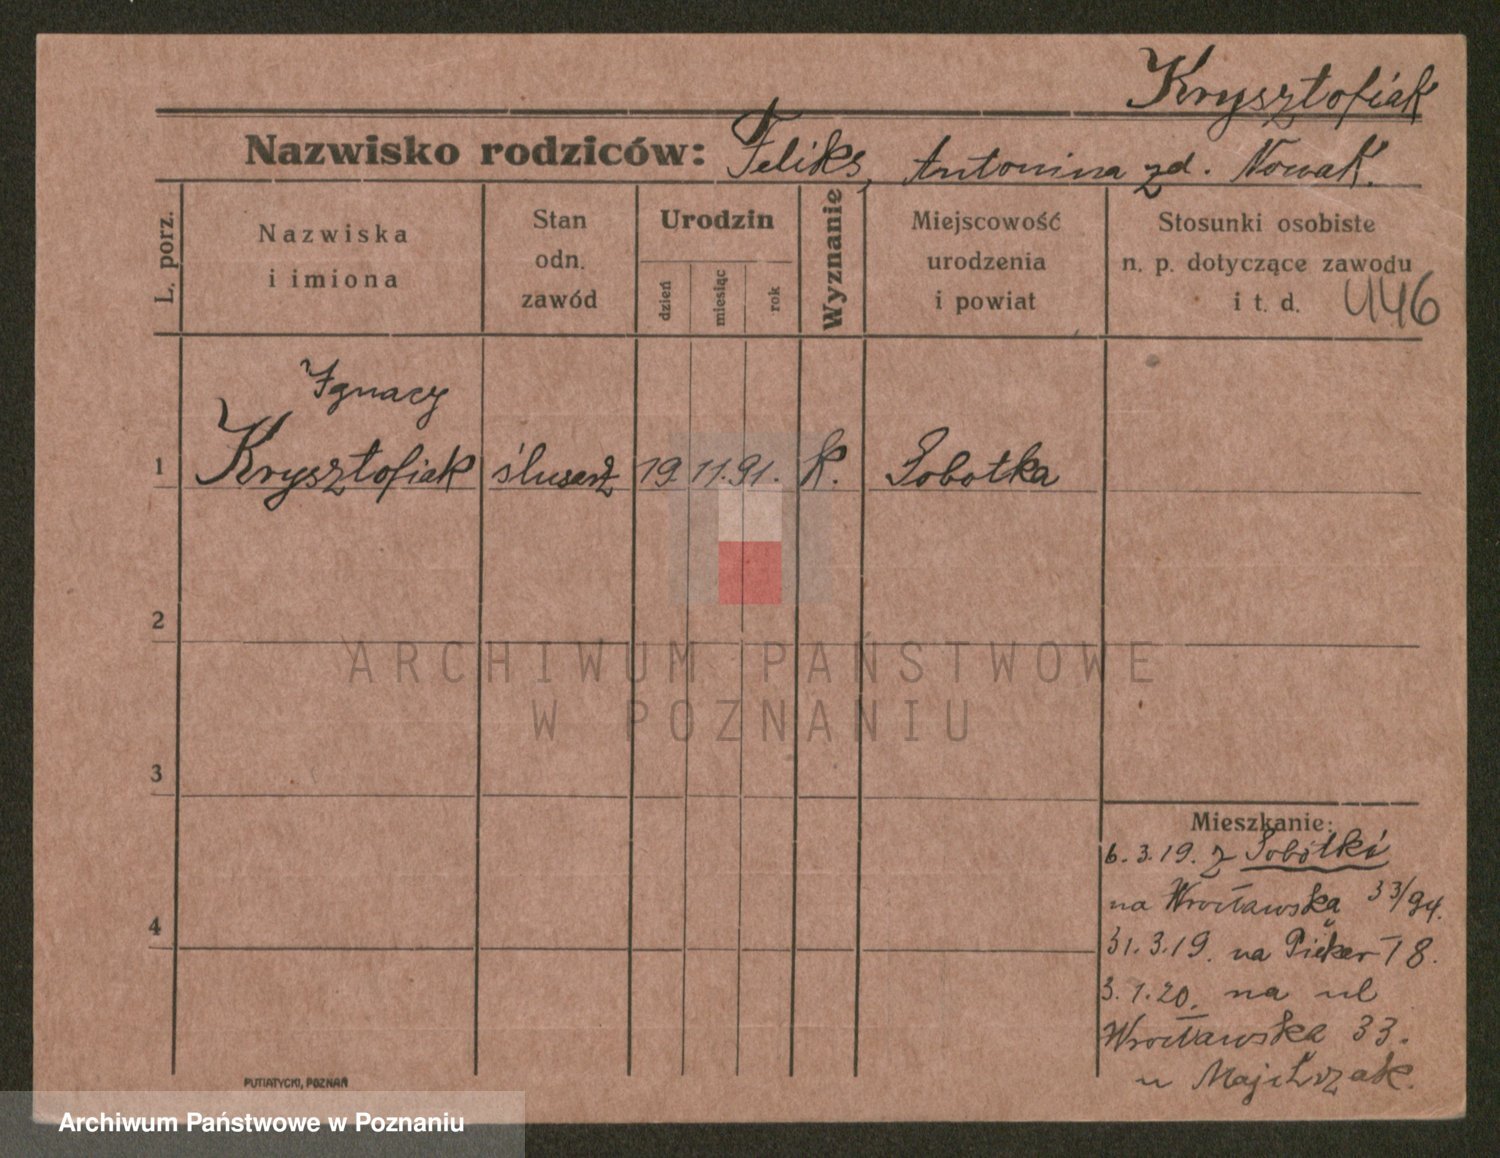 Krysztofiak
Nazwisko rodziców: Feliks, Antonina zd. Nowak.
L. porz.
Nazwiska
i imiona
Stan
odn.
zawód
Urodzin
dzień
miesiąc
rok
Wyznanie
Miejscowość
urodzenia
i powiat
Stosunki osobiste
n. p. dotyczące zawodu
i t. d.
446
Ignacy
1 Krysztofiak ślusarz 19 11. 91. k. Sobotka
2
3
4
Mieszkanie:
6.3.19. z Sobótki
na Wrocławską 33/94.
31.3.19. na Pieker 18.
3.1.20. na ul
Wrocławska 33.
u Majchrzak.
PUTIATYCKI, POZNAŃ
ARCHIWUM PAŃSTWOWE
W POZNANIU
Archiwum Państwowe w Poznaniu